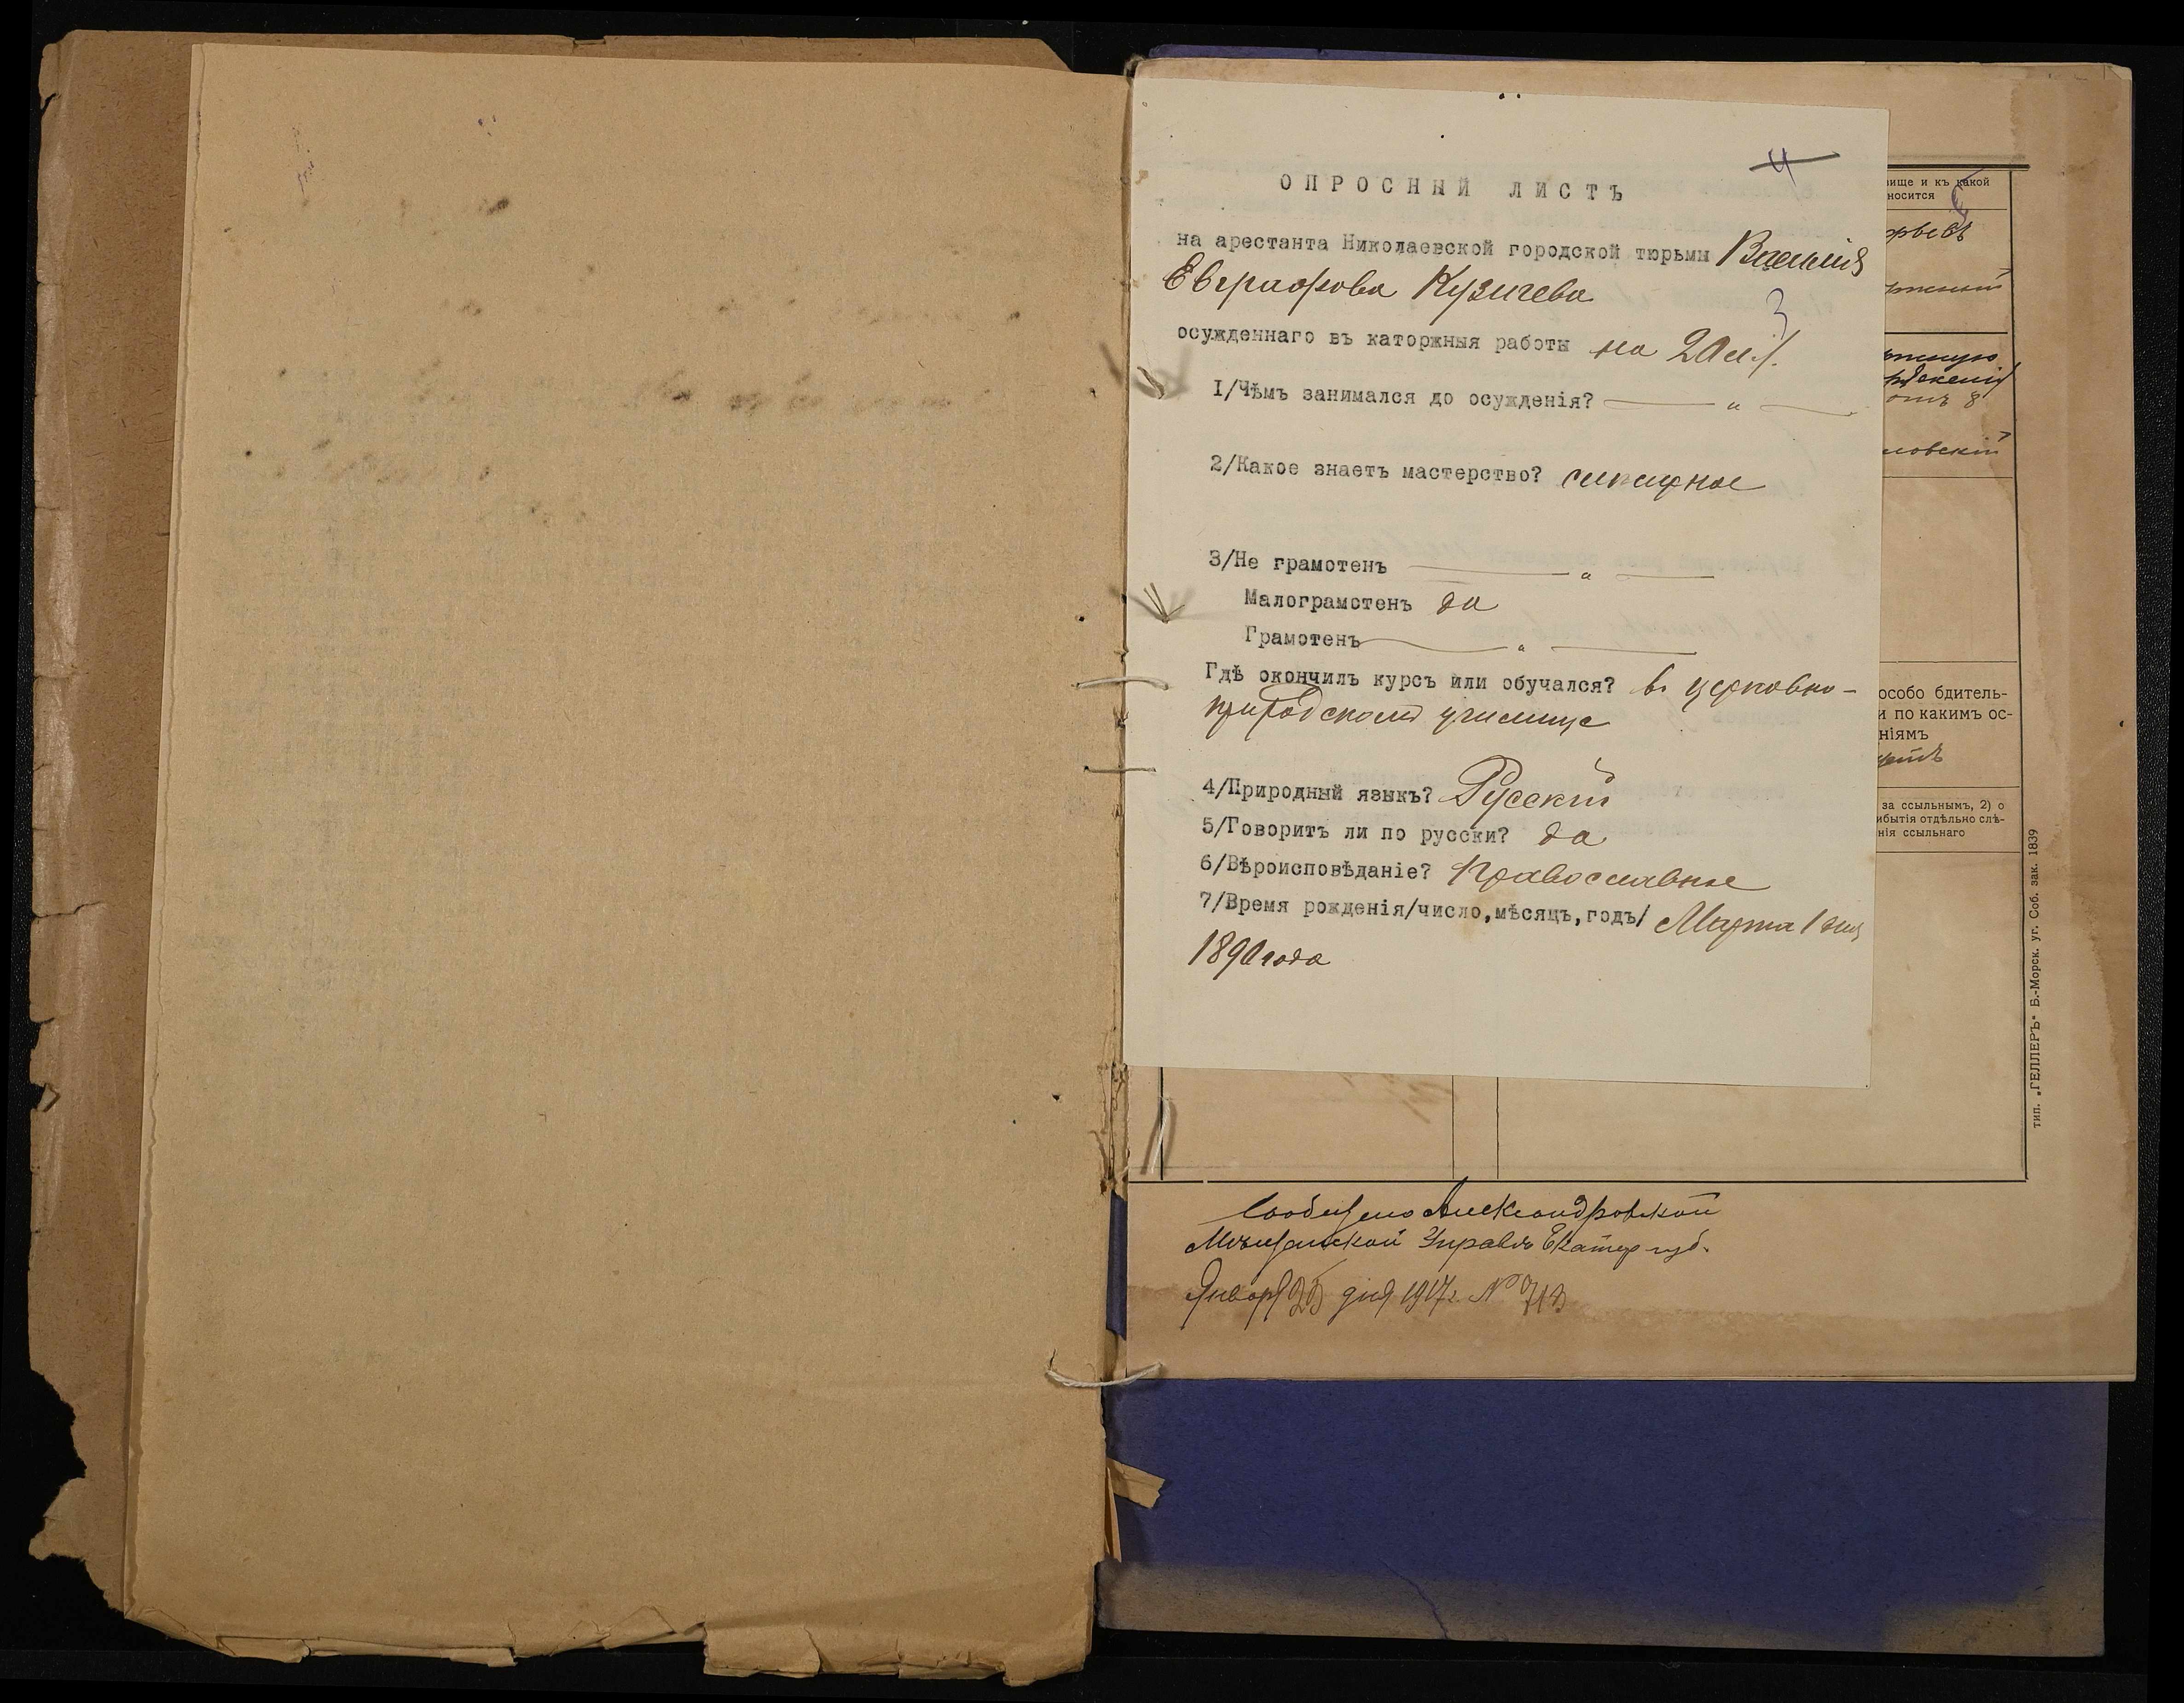 4
ОПРОСНЫЙ ЛИСТЪ
на арестанта Николаевской городской тюрьмы Василія
Евграфова Кузичева
3
осужденнаго въ каторжныя работы на 20 л.
1/Чѣмъ занимался до осужденія? — " —
2/Какое знаетъ мастерство? слесарное
3/Не грамотенъ — " —
Малограмотенъ да
Грамотенъ — " —
Гдѣ окончилъ курсъ или обучался? въ церковно-
приходскомъ училище
4/Природный языкъ? Русскій
5/Говоритъ ли по русски? да
6/Вѣроисповѣданіе? Православное
7/Время рожденія/число,мѣсяцъ,годъ/ Марта 1 дня
1890 года
ище и къ какой
носится
ловскій
особо бдитель-
и по какимъ ос-
ніямъ
за ссыльнымъ, 2) о
ибытія отдѣльно слѣ-
нія ссыльнаго
тип. „ГЕЛЛЕРЪ" Б.-Морск. уг. Соб. зак. 1839
Сообщено Александровской
Мѣщанской Управѣ Екатер губ.
Января 25 дня 1917 г. № 713